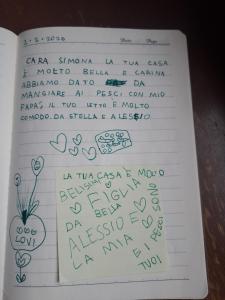 2-2-2020
Date Page
CARA SIMONA LA TUA CASA
È MOLTO BELLA E CARINA
ABBIAMO DATO DA
MANGIARE AI PESCI CON MIO
PAPÀ, IL TUO LETTO È MOLTO
COMODO. DA STELLA E ALESSIO
LA TUA CASA È MOLTO
BELISIMA
FIGLIA
DA BELLA
ALESSIO E
LA MIA
E I PESCI SONO
TUOI
LOVI